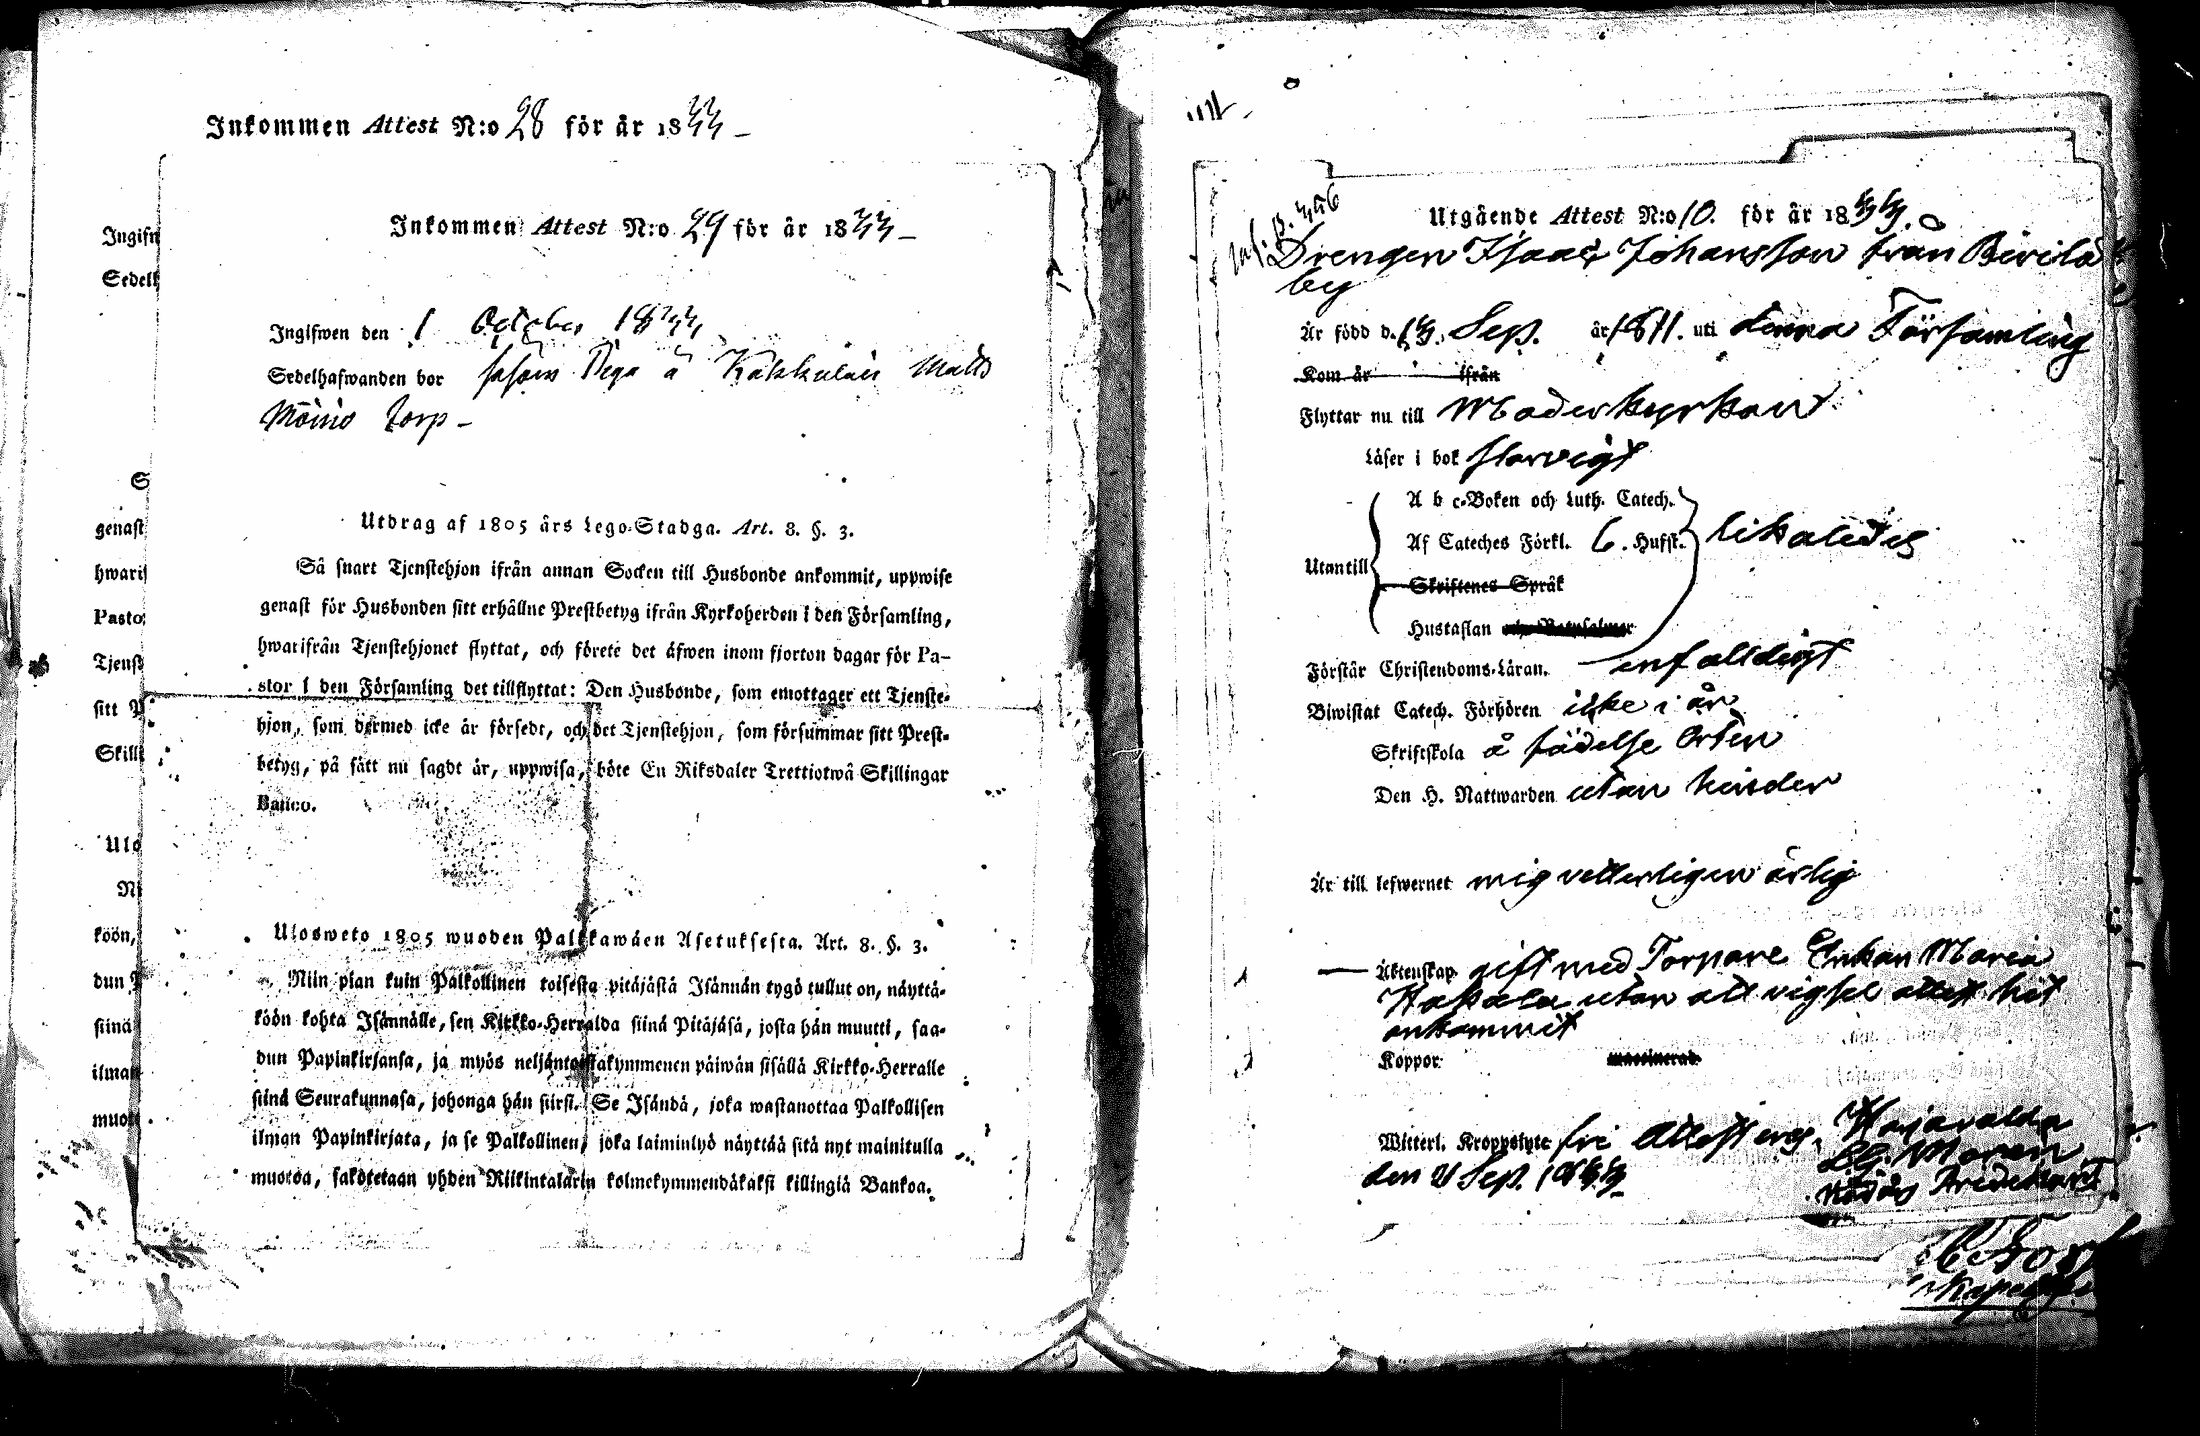 Inkommen Attest N:o 28 för år 1833 –
Ingifw
Sedelh
S
genast
hwari
Pasto
Tjenst
sitt P
Skilli
Ulo
Ni
köön,
dun P
siinä
ilman
muoto
Inkommen Attest N:o 29 för år 1833 –
Ingifwen den 1 October 1833
Sedelhafwanden bor såsom Piga å Kakkulais Matts
Möinio torp –
Utdrag af 1805 års Lego-Stadga. Art. 8. §. 3.
Så snart Tjenstehjon ifrån annan Socken till Husbonde ankommit, uppwise
genast för Husbonden sitt erhållne Prestbetyg ifrån Kyrkoherden i den Församling,
hwarifrån Tjenstehjonet flyttat, och förete det äfwen inom fjorton dagar för Pa-
stor i den Församling det tillflyttat: Den Husbonde, som emottager ett Tjenste-
hjon, som dermed icke är försedt, och det Tjenstehjon, som försummar sitt Prest-
betyg, på sätt nu sagdt är, uppwisa, böte En Riksdaler Trettiotwå Skillingar
Banco.
Ulosweto 1805 wuoden Palkkawäen Asetuksesta. Art. 8. §. 3.
Niin pian kuin Palkollinen toisesta pitäjästä Isännän tygö tullut on, näyttä-
köön kohta Isännälle, sen Kirkko-Herralda siinä Pitäjäsä, josta hän muutti, saa-
dun Papinkirjansa, ja myös neljäntoistakymmenen päiwän sisällä Kirkko-Herralle
siinä Seurakunnasa, johonga hän siirsi. Se Isändä, joka wastanottaa Palkollisen
ilman Papinkirjata, ja se Palkollinen, joka laiminlyö näyttää sitä nyt mainitulla
muotoa, sakotetaan yhden Riikintalarin kolmekymmendäkaksi killingiä Bankoa.
Utgående Attest N:o 10. för år 1833.
Drengen Isaac Johansson från Birilä
by
Är född d. 13. Sep. år 1811. uti denna Församling
Kom år ifrån
Flyttar nu till Moderkyrkan
Läser i bok slarvigt
A b c-Boken och Luth. Catech.
Af Cateches Förkl. 6. Hufst. likaledes
Utantill
Skriftenes Språk
Hustaflan
Förstår Christendoms-Läran. enfalldigt
Biwistat Catech. Förhören icke i år
Skriftskola å födelse Orten
Den H. Nattwarden utan hinder
Är till lefwernet mig vetterligen ärlig
Äktenskap gift med Torpare Enkan Maria
utan att vigsel attest hit
ankommit
Koppor
Witterl. Kroppslyte fri Attesteras. Harjavalda
den 21 Sep. 1833